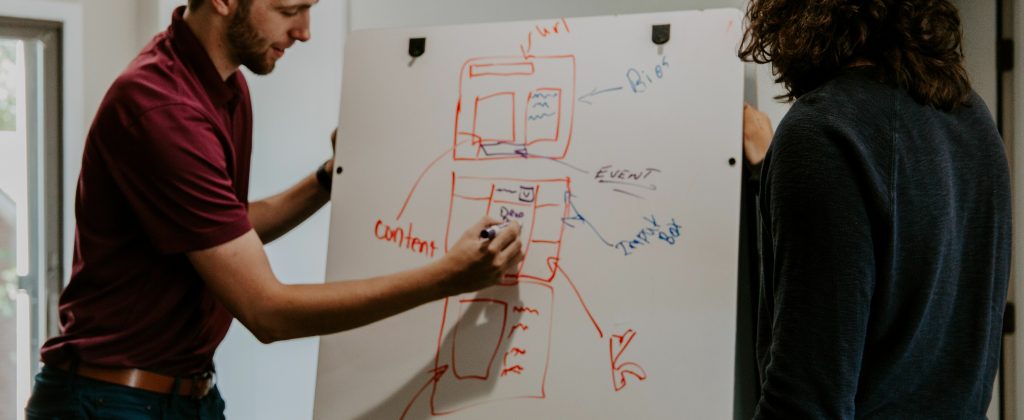 url
Bios
EVENT
content
Input
Box